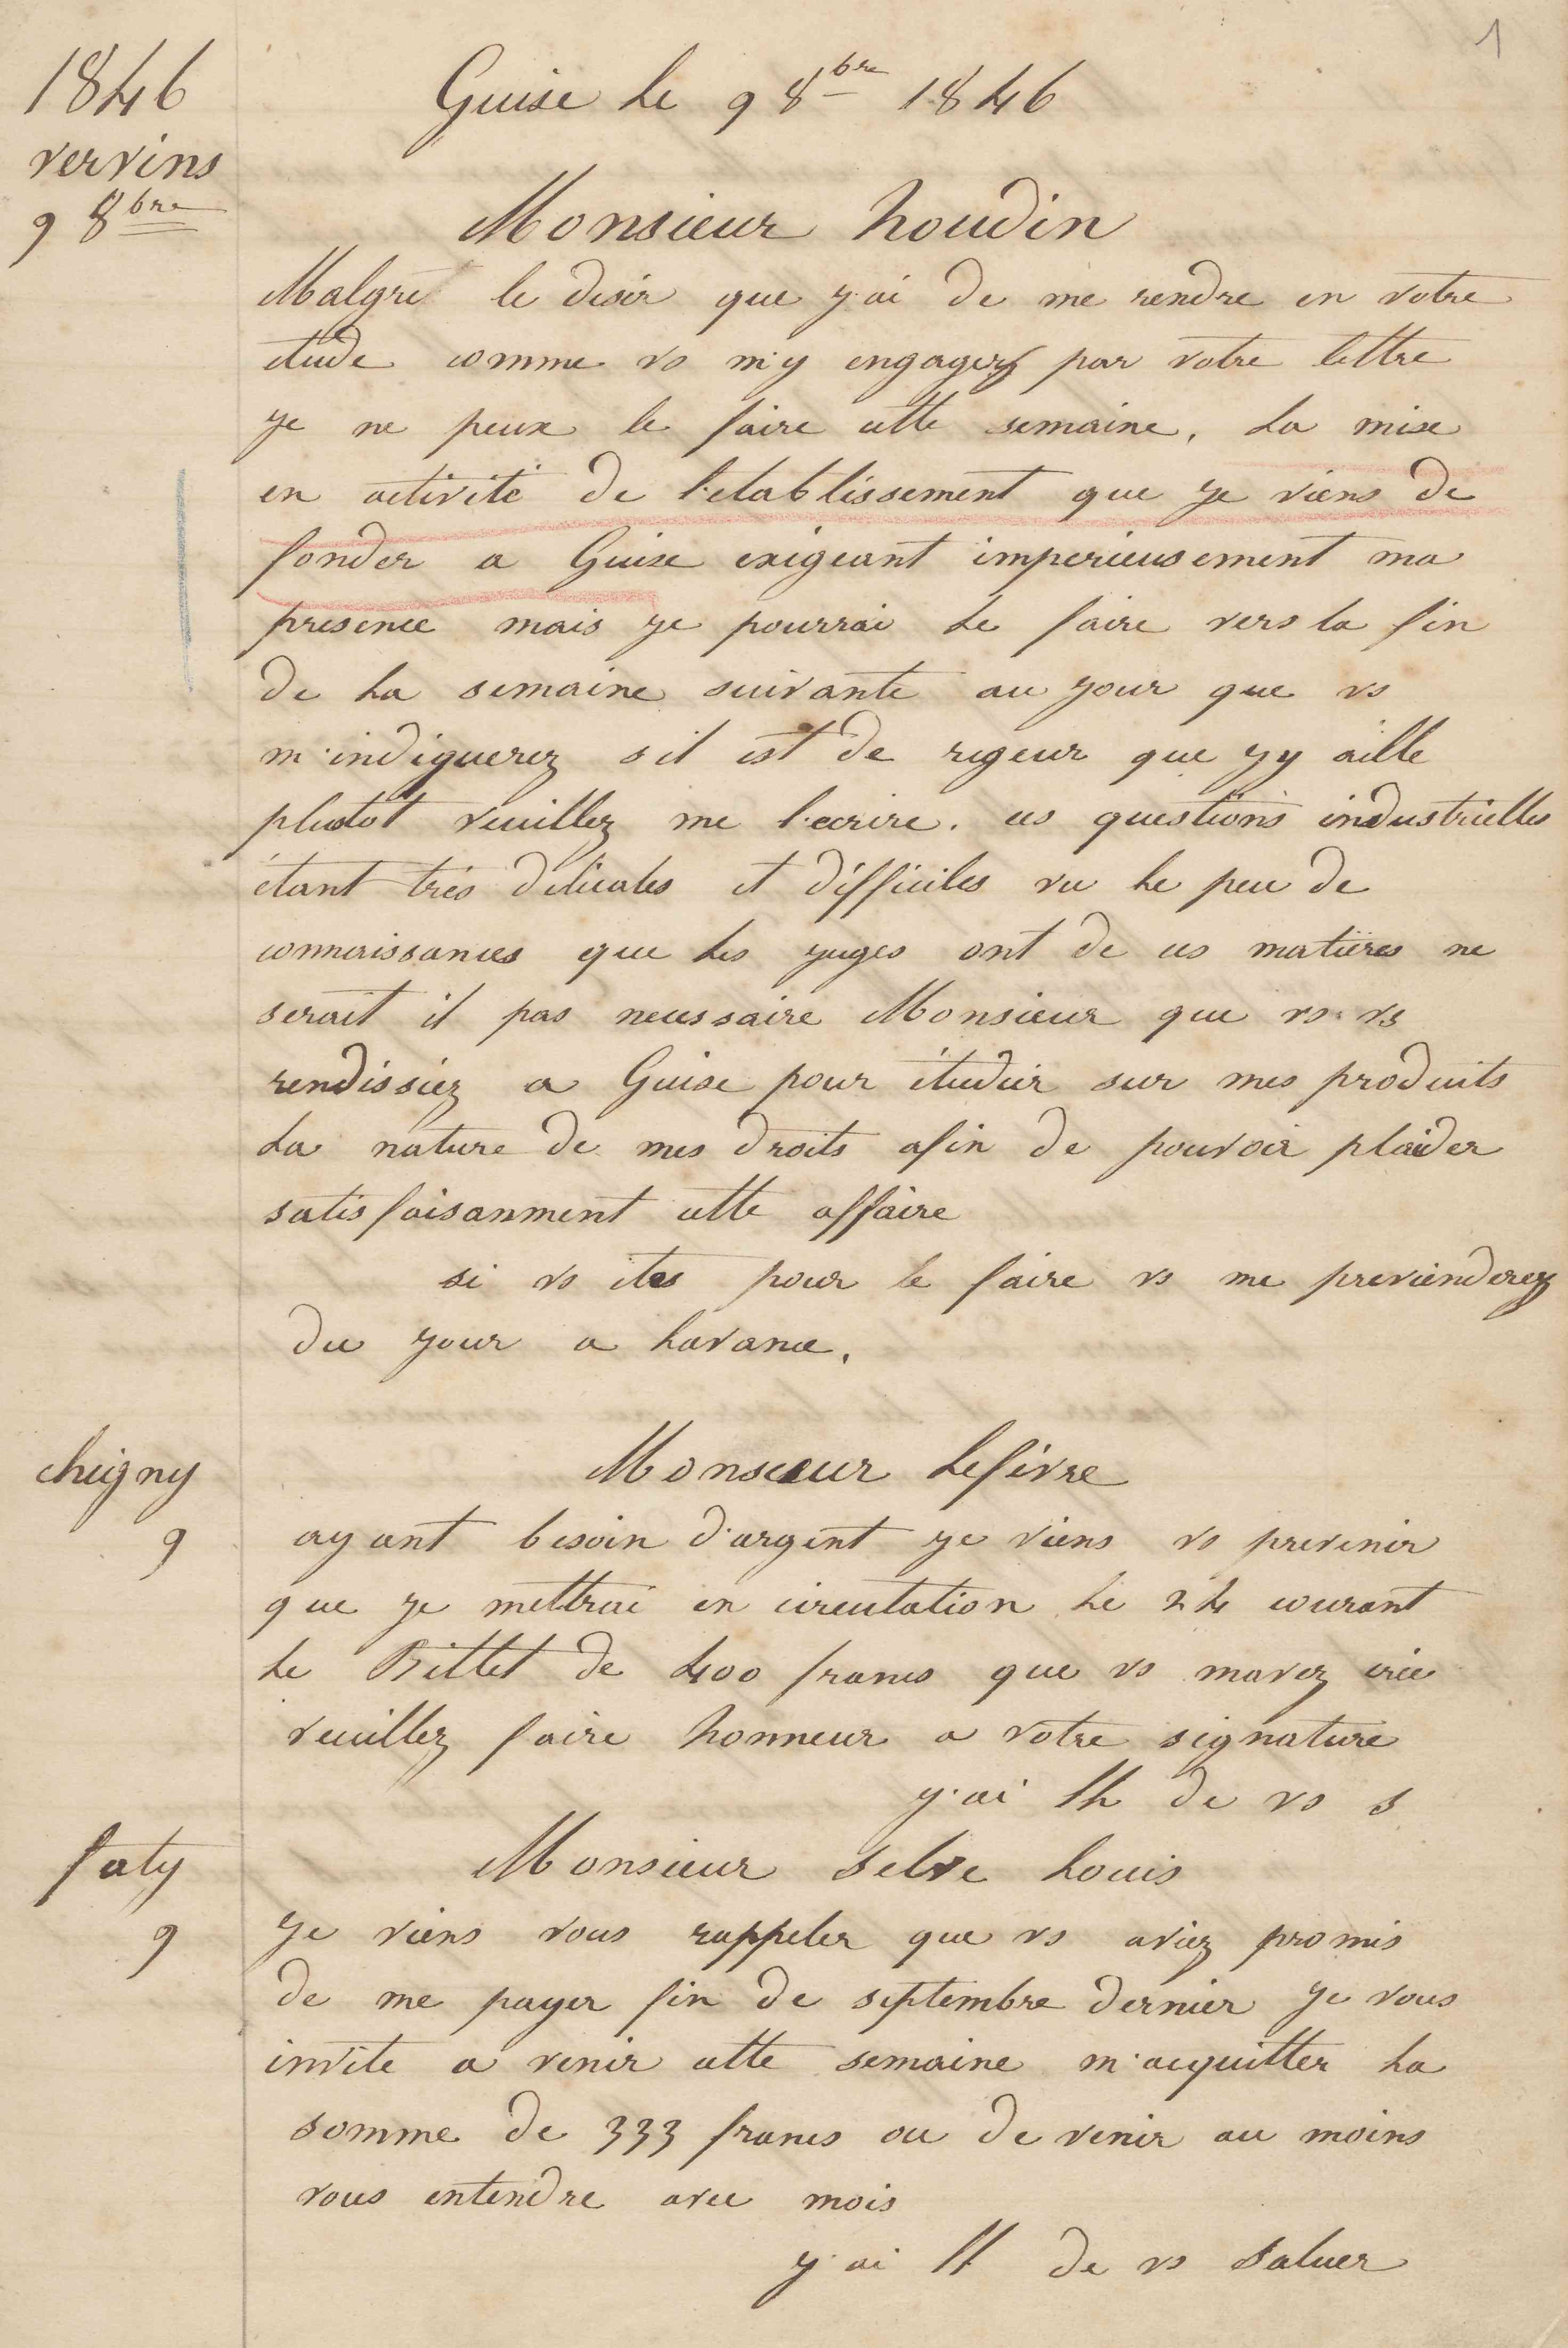 1
1846
vervins
9 8bre
Guise le 9 8bre 1846
Monsieur houdin
Malgré le desir que j'ai de me rendre en votre
etude comme vs m'y engagez par votre lettre
je ne peux le faire cette semaine, la mise
en activité de l'etablissement que je viens de
fonder a Guise exigeant imperieusement ma
presence mais je pourrai le faire vers la fin
de la semaine suivante au jour que vs
m'indiquerez s il est de rigeur que j y aille
plustot veuillez me l'ecrire. ces questions industrielles
étant très delicates et difficiles vu le peu de
connaissances que les juges ont de ces matières ne
serait il pas necessaire Monsieur que vs vs
rendissiez a Guise pour étudier sur mes produits
la nature de mes droits afin de pouvoir plaider
satisfaisanment cette affaire
si vs etes pour le faire vs me previenderez
du jour a lavance.
chigny
9
Monsieur lefèvre
ayant besoin d'argent je viens vs prevenir
que je mettrai en circulation le 24 courant
le Billet de 400 francs que vs mavez créé
veuillez faire honneur a votre signature
j'ai lh de vs s
faty
9
Monsieur selve louis
je viens vous rappeler que vs aviez promis
de me payer fin de septembre dernier je vous
invite a venir cette semaine m'acquitter la
somme de 333 francs ou de venir au moins
vous entendre avec mois
j'ai lh de vs saluer